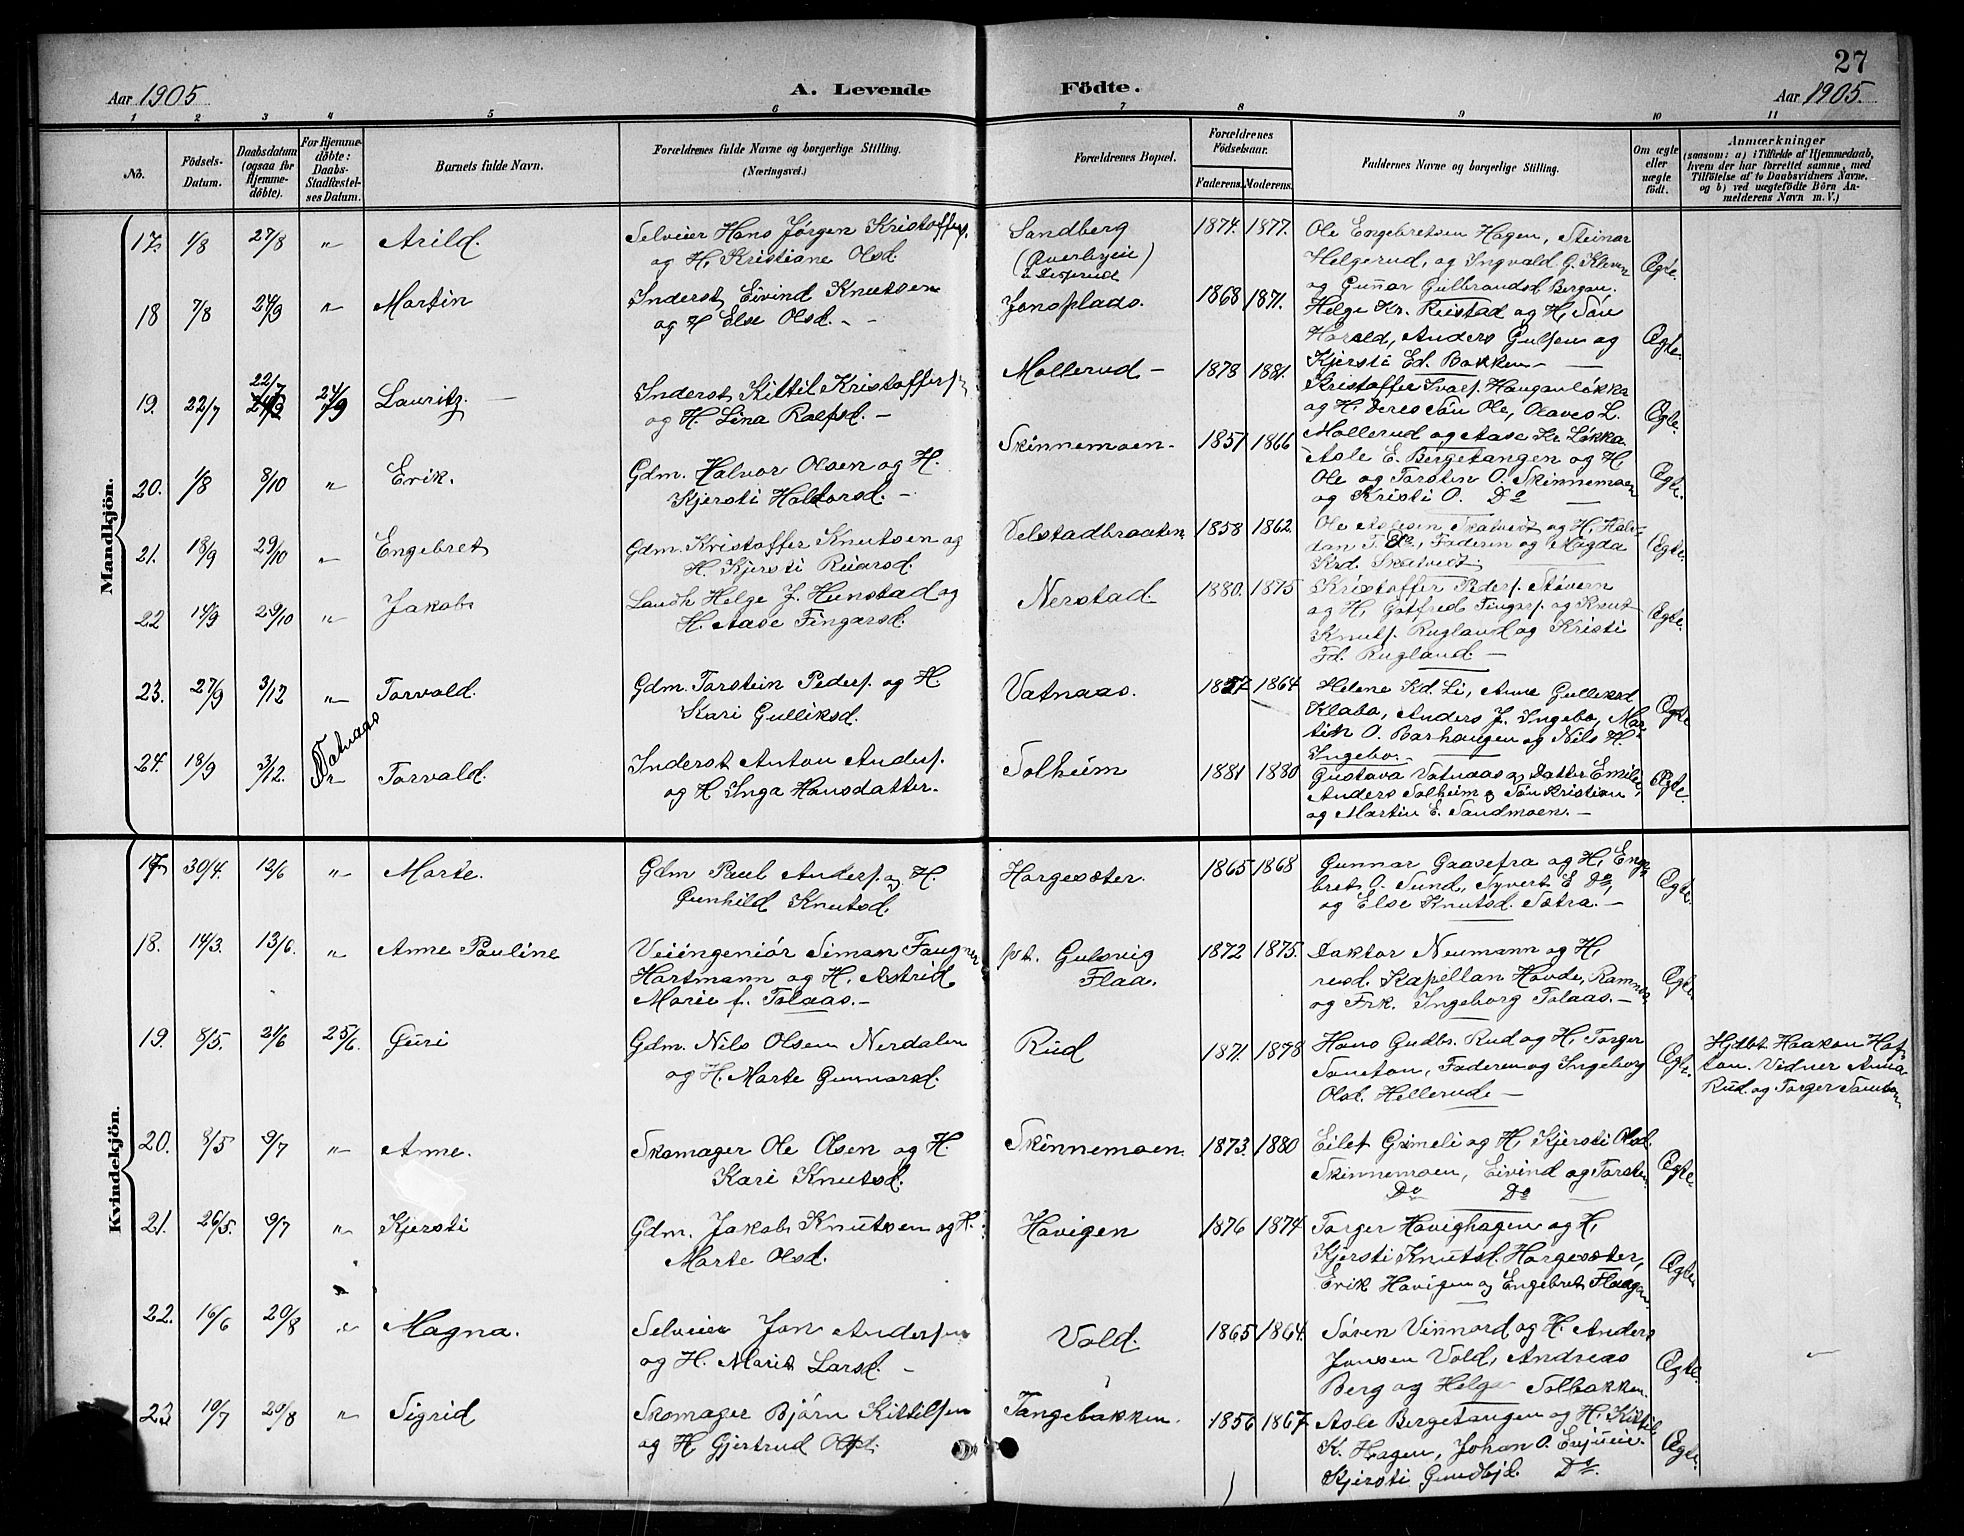 27
Aar 1905. A. Levende Födte. Aar 1905.
1 2 3 4 5 6 7 8 9 10 11
No.
Födsels-
Datum.
Daabsdatum
(ogsaa for
Hjemme-
döbte).
For Hjemme-
döbte:
Daabs-
Stadfæstel-
ses Datum.
Barnets fulde Navn.
Forældrenes fulde Navne og borgerlige Stilling.
(Næringsvei.)
Forældrenes Bopæl.
Forældrenes
Födselsaar.
Faderens. Moderens.
Faddernes Navne og borgerlige Stilling.
Om ægte
eller
uægte
födt.
Anmærkninger
(saasom: a) i Tilfælde af Hjemmedaab,
hvem der har forrettet samme, med
Tilföielse af to Daabsvidners Navne.
og b) ved uægtefödte Börn An-
melderens Navn m. V.)
Mandkjön.
17. 1/8 27/8 " Arild. Selveier Hans Jørgen Kristoffers.
og H. Kristiane Olsd. Sandberg
(Averbyeie 1874. 1877. Ole Engebretsen Hagen, Steinar
Helgerud, og Ingvald G. Kleven
og Gunnar Gulbrandsd. Bergan. Ægte.
18 7/8 24/9 " Martin Inderst Eivind Knutsen
og H. Else Olsd. - Jonsplads. 1868 1871. Helge Kr. Rustad og H, Søn
Harald, Anders Gulsen og
Kjersti Ed. Bakken - Ægte.
19. 22/7 22/7 24/9 24/9 Lauritz. - Inderst Kittil Kristoffers.
og H. Lina Rolfsd. - Mollerud - 1878 1881. Kristoffer Ivars. Hauganløkka
og H. Deres Søn Ole, Olaves L.
Mollerud og Aase Kr. Løkka. Ægte.
20. 1/8 8/10 " Erik. Gdm. Halvor Olsen og H.
Kjersti Haldorsd. - Skinnemoen - 1851 1866 Asle E. Bergetangen og H
Ole og Torsten O. Skinnemoen
og Kristi O. Do - Ægte.
21. 18/9 29/10 " Engebret Gdm. Kristoffer Knutsen og
H. Kjersti Reiarsd. Velstadbraaten 1858 1862. Ole Aslesen Skatvedt og H, Hal-
dan T. Do, Faderen og Magda
Krd. Skatvedt. Ægte.
22 14/9 29/10 " Jakob Landh Helge J. Hunstad og
H. Aase Fingarsd. Nerstad. 1880. 1875 Kristoffer Peders. Støvern
og H, Gotfred Fingars. og Knut
Knuts. Rugland og Kristi
Fd. Rugland. - Ægte.
23. 27/9 3/12 " Torvald. Gdm. Torstein Peders. og H.
Kari Gulliksd. Vatnaas. 1857. 1864 Helene Kd. Li, Anne Gulliksd
Klabo, Anders J. Ingebo, Mar-
tin O. Barhaugen og Nils H.
Ingebo. Ægte
24. 18/9 3/12. Vatnaas Torvald. Inderst Anton Anders.
og H Inga Hansdatter. Solheim 1881 1880 Gustava Vatnaas og Datter Emilie,
Anders Solheim og Søn Kristian
og Martin E. Sandmoen. - Ægte.
Kvindekjön.
17 30/4. 12/6 " Marte. Gdm Paul Anders. og H.
Gunhild Knutsd. Horgesæter. 1865 1868 Gunnar Gaasefra og H, Enge-
bret O. Sund, Syvert E Do,
og Else Knutsd. Sætra. - Ægte.
18. 14/3. 13/6. " Anne Pauline Veiingeniør Simon Faugner
Hartmann og H. Astrid
Marie f. Tolaas. - pt. Gulsvig
Flaa. 1872 1875. Doktor Neumann og H,
resd. Kapellan Hovde, Ramnes,
og Frk. Ingeborg Tolaas. - Ægte.
19. 8/5. 21/6 25/6. Guri Gdm. Nils Olsen Nerdalen
og H. Marte Gunnarsd. Rud 1871. 1878 Hans Gudbr. Rud og H, Torger
Tometon, Faderen og Ingeborg
Olsd. Hellerude - Ægte. Hjdbt. Haakon Haf-
ton. Vidner Anna
Rud og Torger Tomton
20. 8/5 9/7 " Anne. Skomager Ole Olsen og H.
Kari Knutsd. Skinnemoen. 1873. 1880 Eilef Grimeli og H, Kjersti Olsd.
Skinnemoen, Eivind og Torsten
Do Do - Ægte
21. 26/5. 9/7 " Kjersti Gdm. Jakob Knutsen og H.
Marte Olsd. Havigen 1876 1874 Torger Havighagen og H,
Kjersti Knutsd. Horgesæter,
Erik Havigen og Engebret Flaagan. Ægte
22. 16/6 20/8 " Magna. Selveier Jon Andersen
og H. Marit Larsd. - Vold. 1865 1864. Søren Vinnord og H. Anders
Jonsen Vold, Andreas
Berg og Helge Solbakken. Ægte.
23 10/7 20/8 " Sigrid Skomager Bjørn Kittilsen
og H Gjertrud Tangebakken. 1856 1867 Asle Bergetangen og H, Kittil
K. Hagen, Johan O. Enjueie
Kjersti Gundbjd. Do. Ægte.